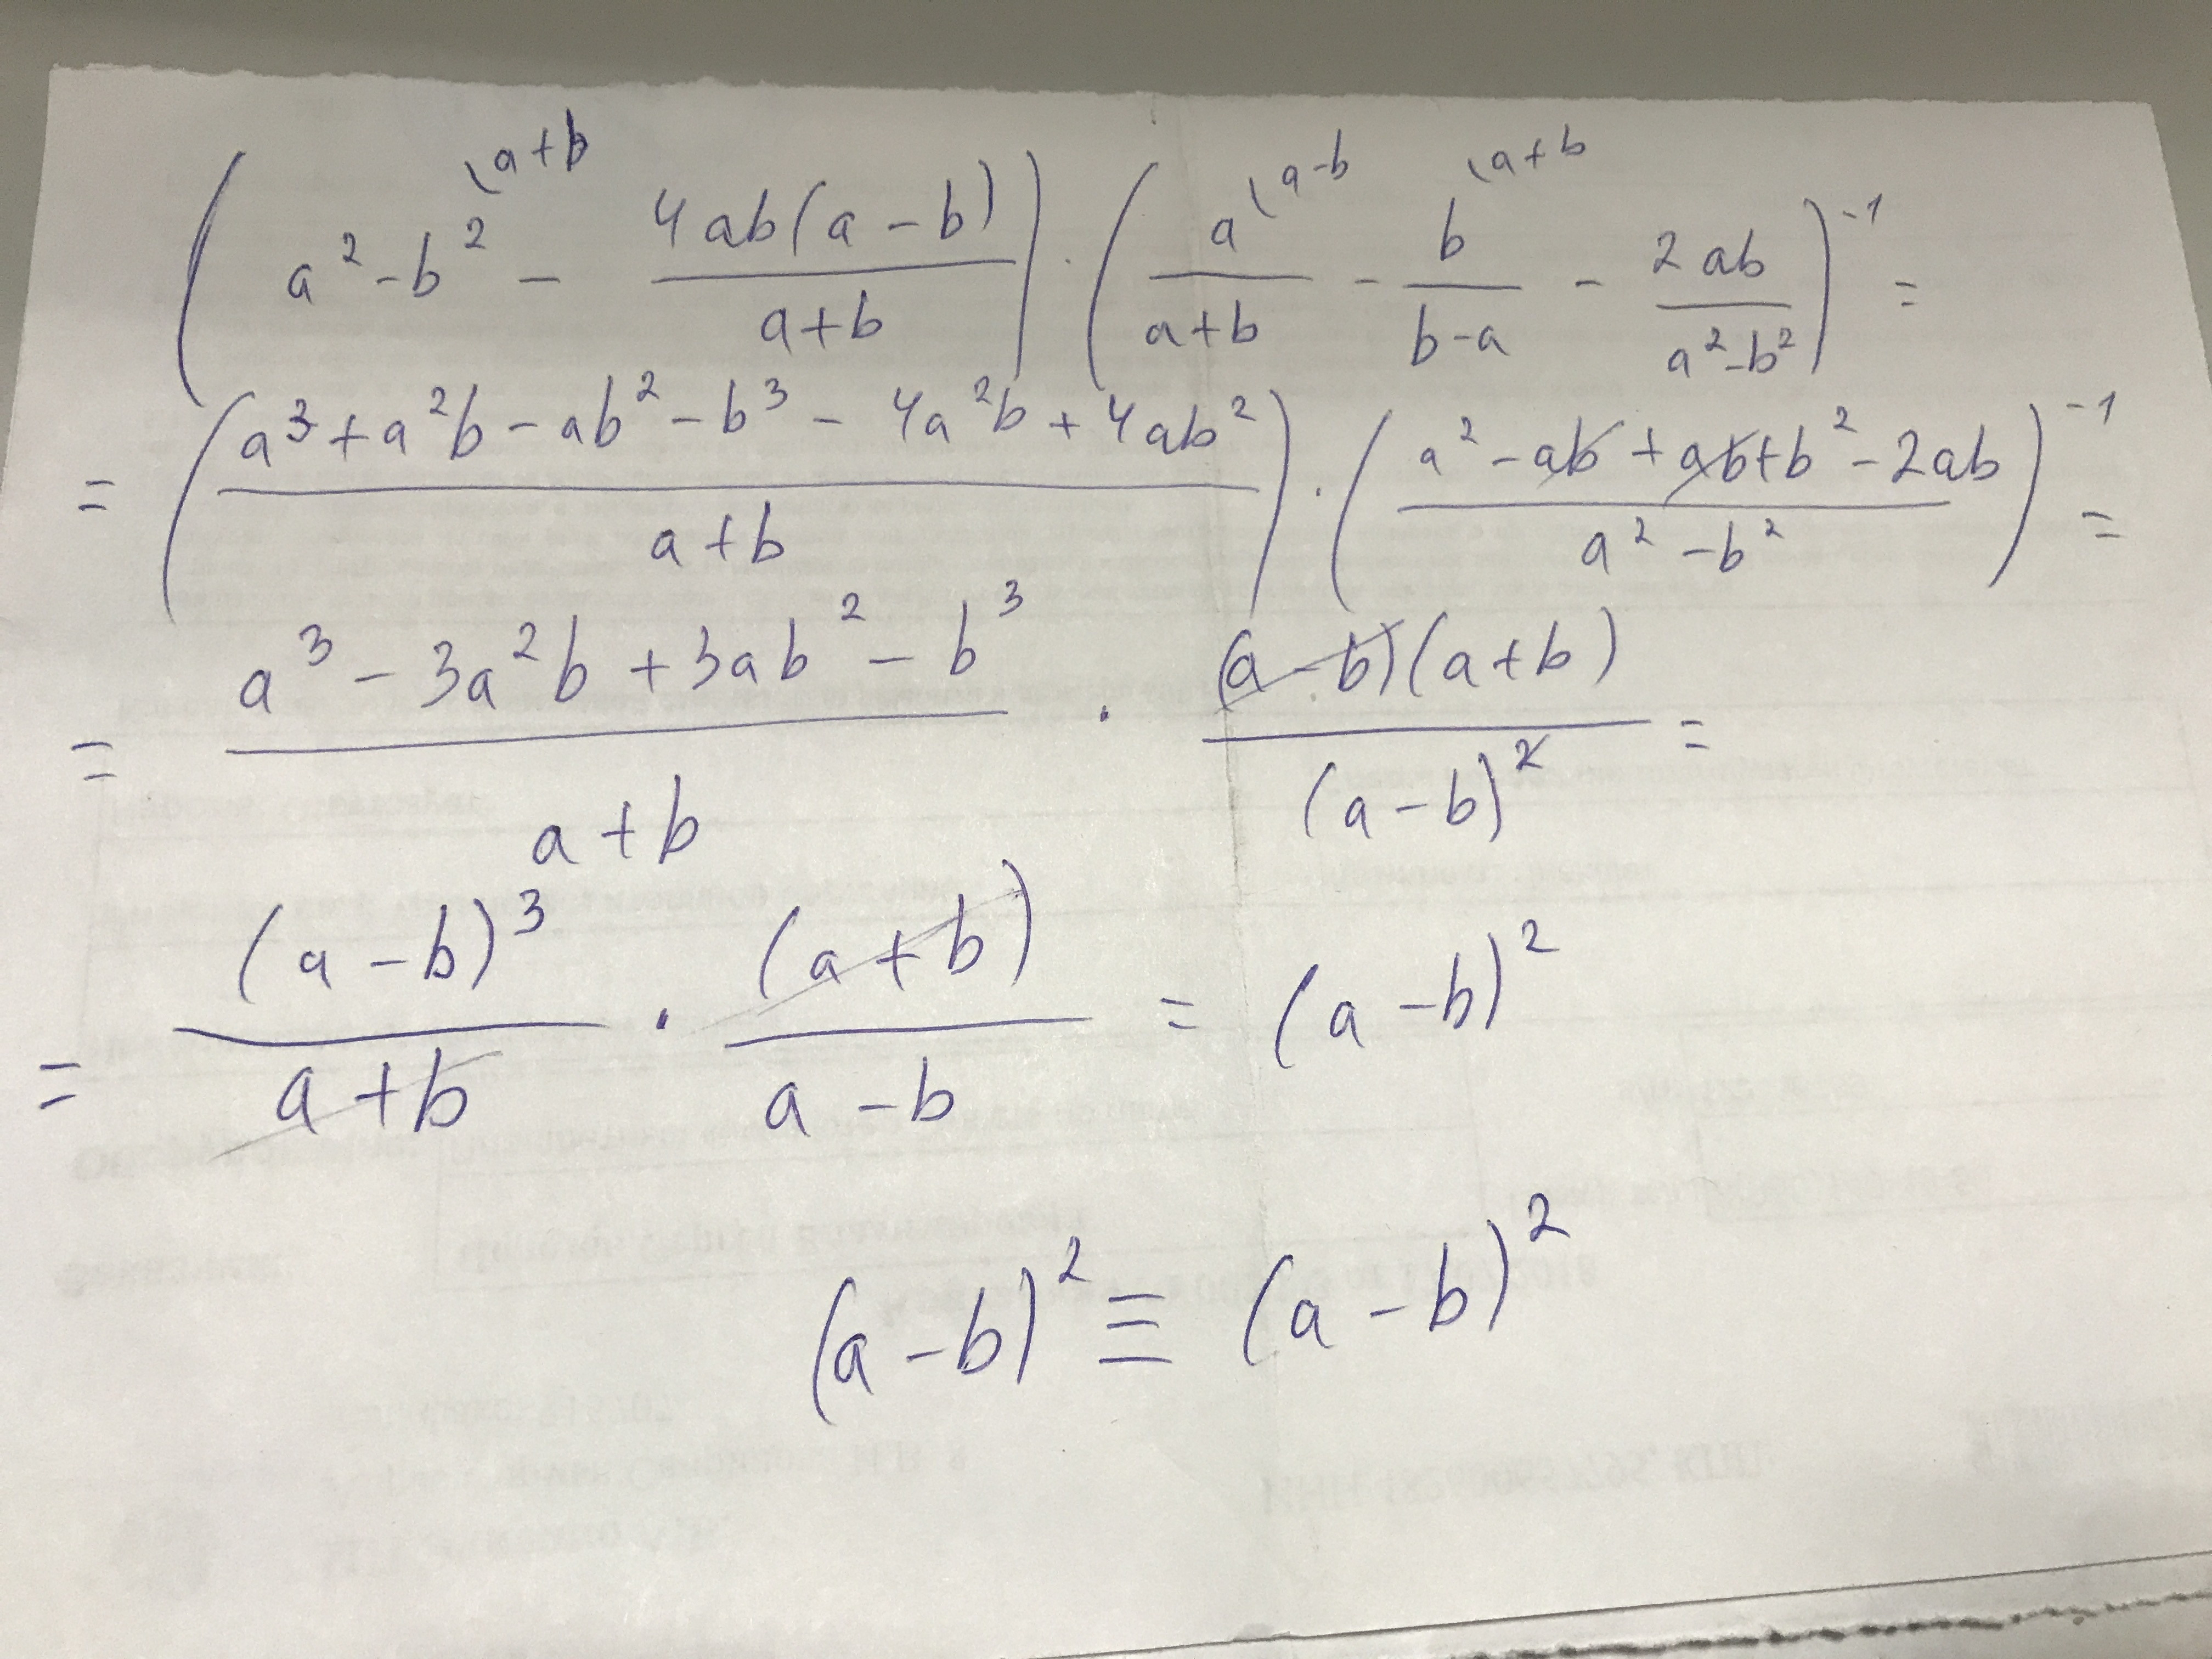 (a² - b² \a+b - 4ab(a - b)/(a+b)) · (a \a-b/(a+b) - b \a+b/(b-a) - 2ab/(a²-b²))⁻¹ =
= ((a³ + a²b - ab² - b³ - 4a²b + 4ab²)/(a+b)) · ((a² - ab + ab + b² - 2ab)/(a² - b²))⁻¹ =
= (a³ - 3a²b + 3ab² - b³)/(a+b) · (a-b)(a+b)/(a-b)² =
= (a-b)³/(a+b) · (a+b)/(a-b) = (a-b)²
(a-b)² ≡ (a-b)²